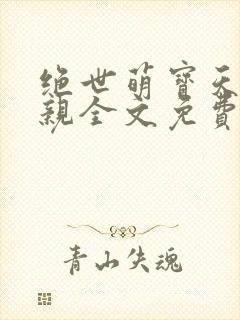 绝世萌寳天
親全文免費
青山失魂